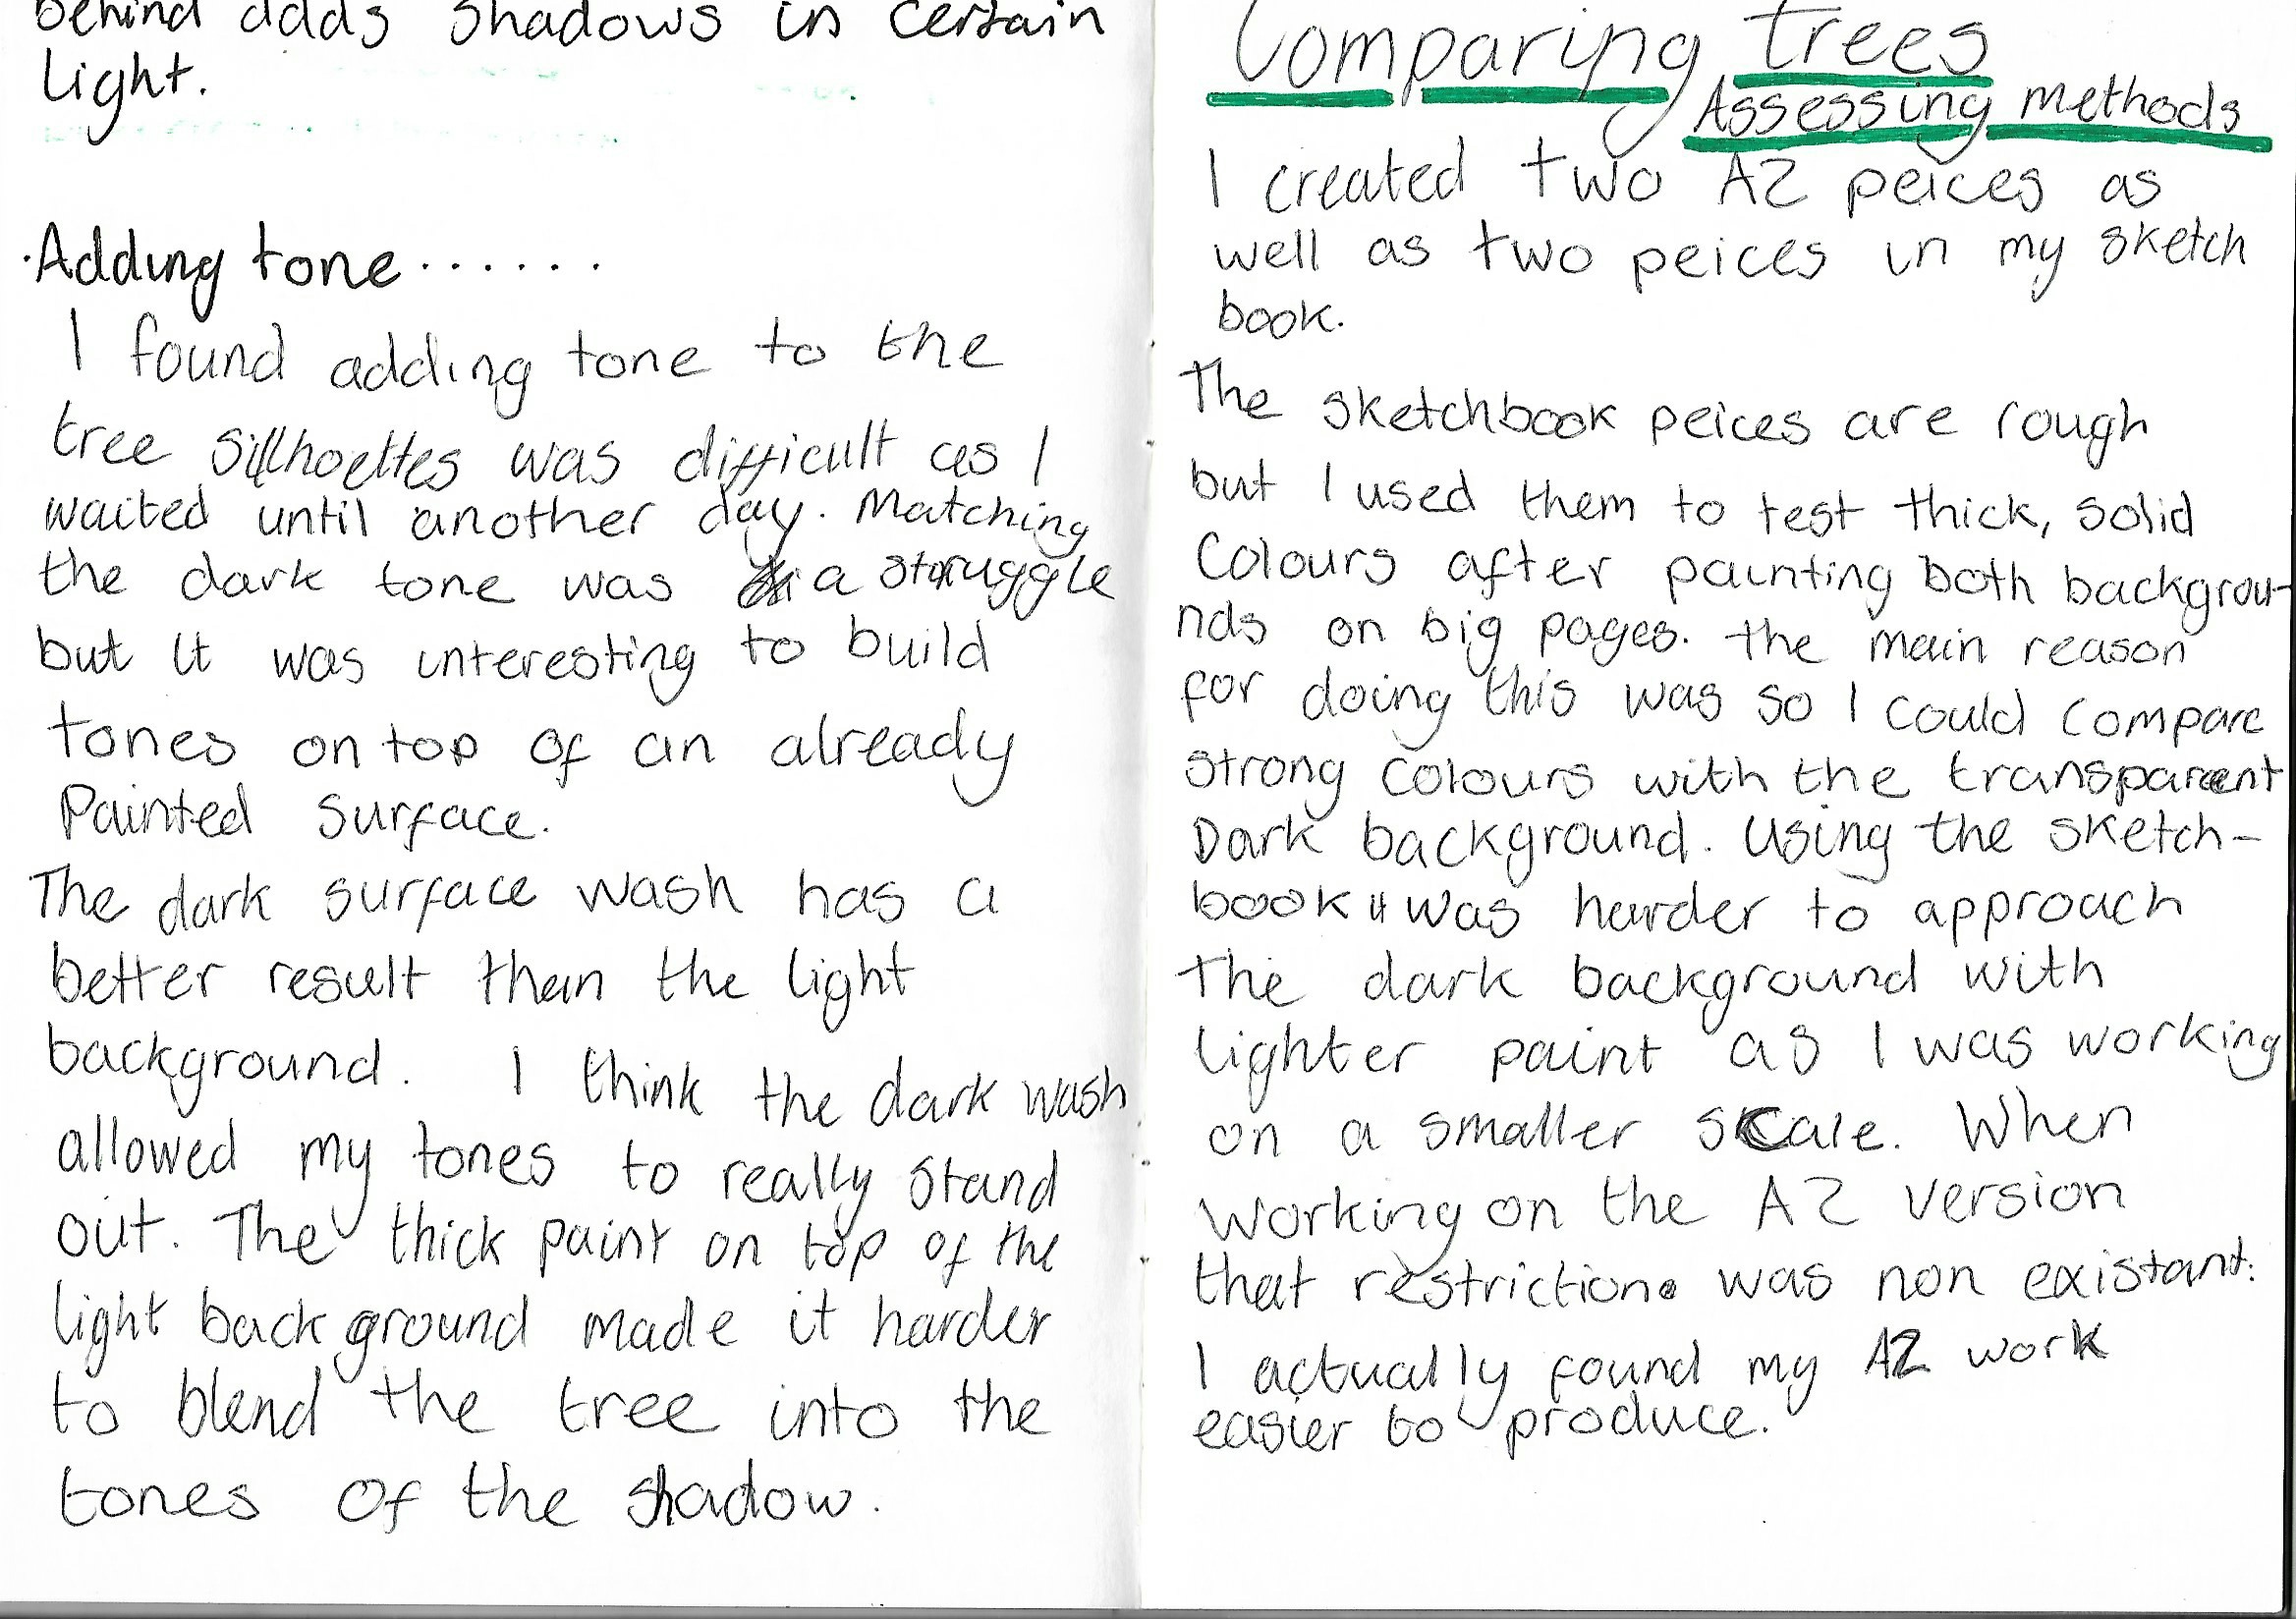 behind adds shadows in certain
light.
·Adding tone......
I found adding tone to the
tree sillhoettes was difficult as I
waited until another day. Matching
the dark tone was a struggle
but it was interesting to build
tones on top of an already
Painted surface.
The dark surface wash has a
better result than the light
background. I think the dark wash
allowed my tones to really stand
out. The thick paint on top of the
light back ground made it harder
to blend the tree into the
tones of the shadow.
Comparing trees
Assessing methods
I created two A2 peices as
well as two peices in my sketch
book.
The sketchbook peices are rough
but I used them to test thick, solid
Colours after painting both backgrou-
nds on big pages. the main reason
for doing this was so I could compare
strong colours with the transparent
Dark background. Using the sketch-
book it was harder to approach
the dark background with
lighter paint as I was working
on a smaller scale. When
working on the A2 version
that restriction. was non existant.
I actually found my A2 work
easier to produce.